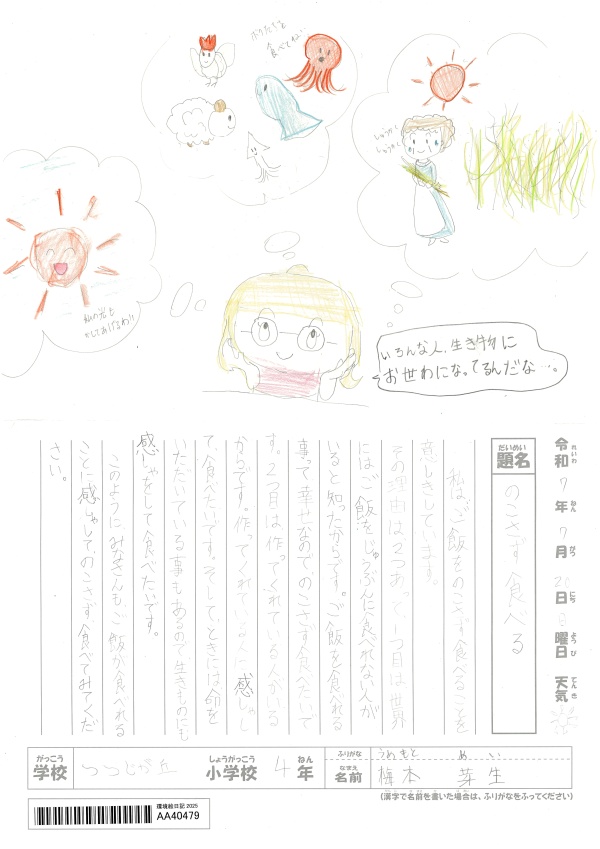 ぼくたちを
食べてね♡
しゅうかく
しゅうかく
私の光も
かしてあげるわ!!
いろんな人、生き物に
お世わになってるんだな…。
令和7年7月20日日曜日 天気
れいわ ねん がつ にち ようび てんき
題名 のこさず食べる
だいめい
私は、ご飯をのこさず食べることを
意しきしています。
その理由は2つあって1つ目は世界
にはご飯をじゅうぶんに食べれない人が
いると知ったからです。ご飯を食べれる
事って幸せなのでのこさず食べたいで
す。2つ目は、作ってくれている人がいる
からです。作ってくれている人に感しゃし
て、食べたいです。そして、ときには命を
いただいている事もあるので生きものにも
感しゃをして食べたいです。
このようにみなさんも、ご飯が食べれる
ことに感しゃして、のこさず、食べてみてくだ
さい。
がっこう しょうがっこう ねん
学校 つつじが丘 小学校 4年
ふりがな うめもと めい
なまえ
名前 梅本 芽生
(漢字で名前を書いた場合は、ふりがなをふってください)
環境絵日記 2025
AA40479